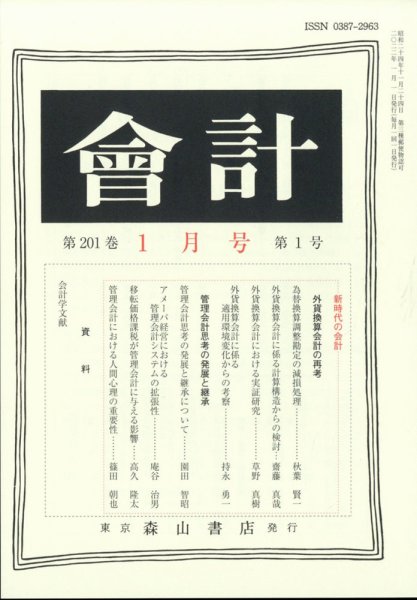 ISSN 0387-2963
昭和二十四年十一月二十四日 第三種郵便物認可
二〇二二年一月一日発行(毎月一回一日発行)
會計
第201巻 1月号 第1号
新時代の会計
外貨換算会計の再考
為替換算調整勘定の減損処理 秋葉 賢一
外貨換算会計に係る計算構造からの検討 齋藤 真哉
外貨換算会計における実証研究 草野 真樹
外貨換算会計に係る
適用環境変化からの考察 持永 勇一
管理会計思考の発展と継承
管理会計思考の発展と継承について 園田 智昭
アメーバ経営における
管理会計システムの拡張性 庵谷 治男
移転価格課税が管理会計に与える影響 高久 隆太
管理会計における人間心理の重要性 篠田 朝也
資料
会計学文献
東京 森山書店 発行